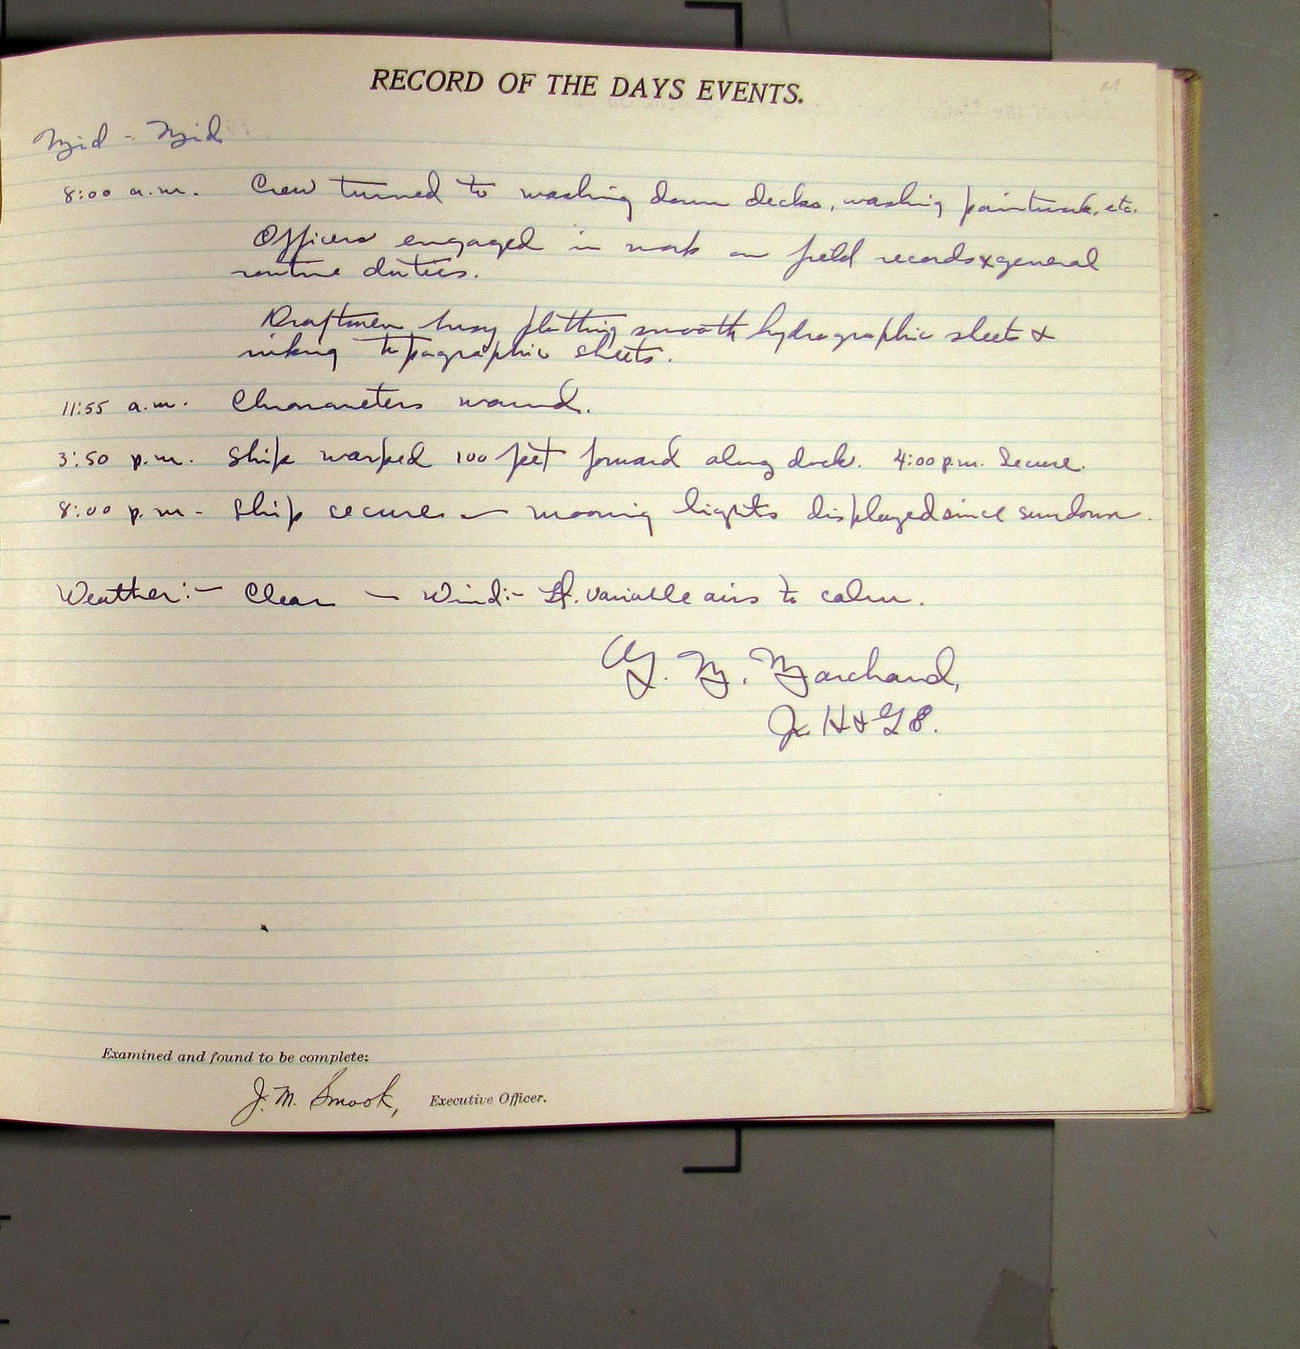 RECORD OF THE DAYS EVENTS.
Mid - Mid
8:00 a.m. Crew turned to washing down decks, washing paintwork, etc.
Officers engaged in work on field records & general
routine duties.
Draftmen busy plotting smooth hydrographic sheets &
inking topographic sheets.
11:55 a.m. Chronometers wound.
3:50 p.m. Ship warped 100 feet forward along dock. 4:00 p.m. Secure.
8:00 p.m. - Ship secure - mooring lights displayed since sundown.
Weather:- Clear - Wind:- Lt. variable airs to calm.
M. Marchand,
Jr. H & G E.
Examined and found to be complete:
J. M. Smook, Executive Officer.